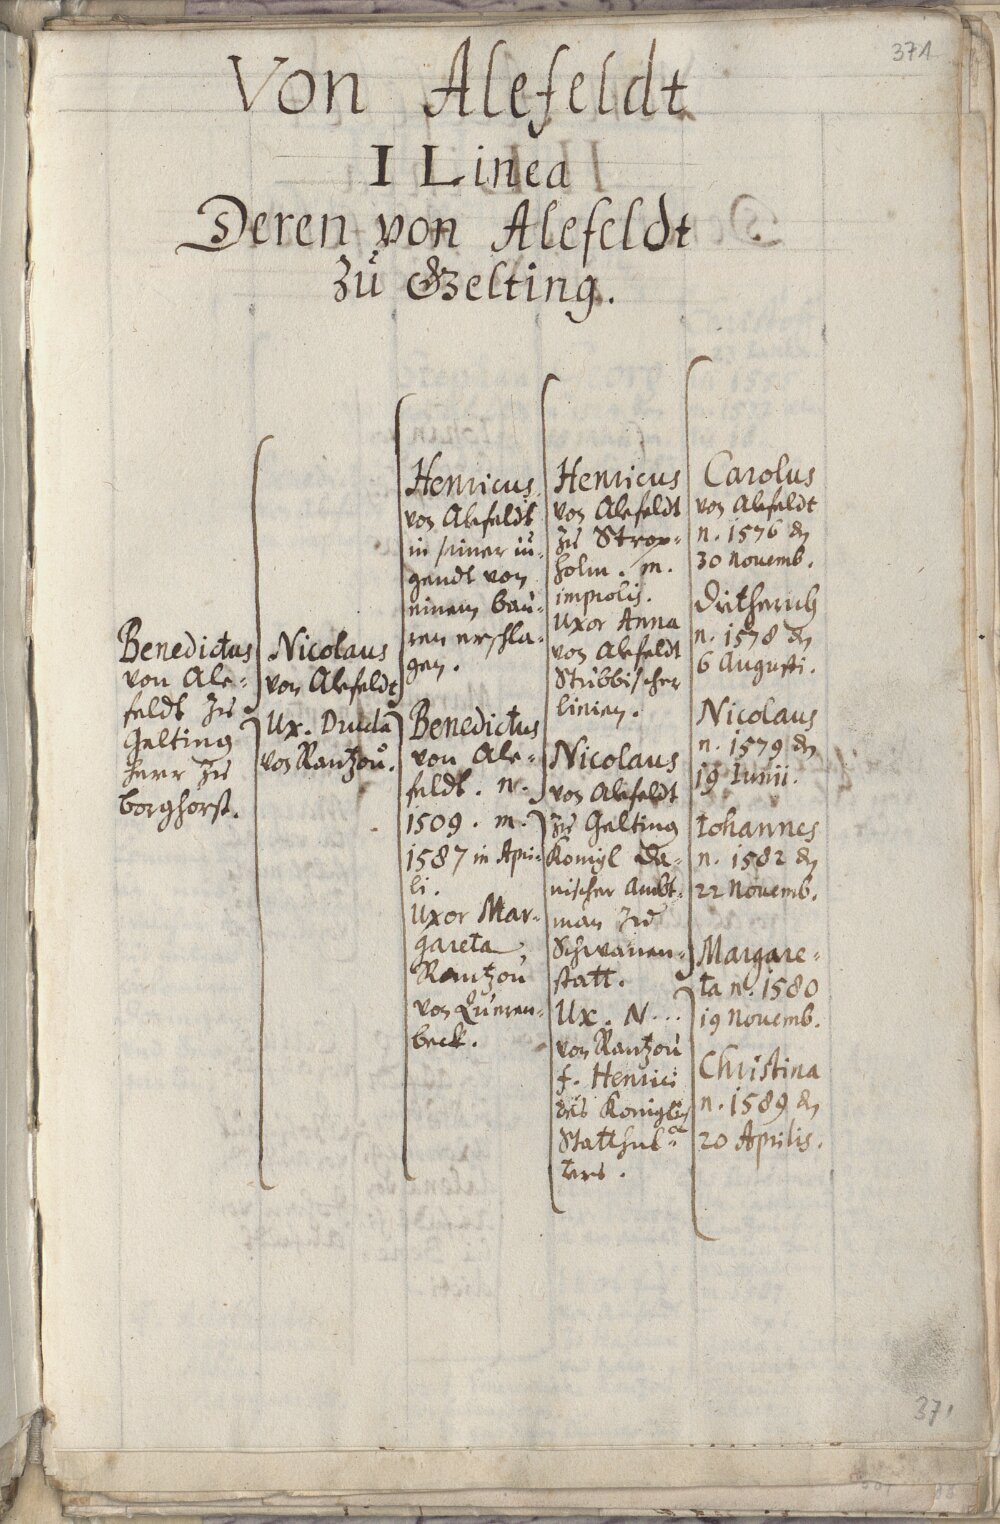 371
Von Alefeldt
I Linea
Deren von Alefeldt
Zů Gelting.
Benedictus
von Ale=
feldt zu
Gelting
herr zu
borghorst.
Nicolaus
von Alefeldt
Ux. Ducla
von Rantzoů.
Henricus
von Alefeldt
in seiner iu=
gendt von
einem bau=
ren erschla=
gen.
Benedictus
von Ale=
feldt. n.
1509. m.
1587 in Apri=
li.
Uxor Mar=
gareta
Rantzoů
von Queren=
beck.
Henricus
von Alefeldt
zu
holm. m.
improlis.
Uxor Anna
von Alefeldt
Stubbischer
linien.
Nicolaus
von Alefeldt
zu Gelting
Konigl Da=
nischer Ambt=
man zu
Schwauen=
statt.
Ux. N...
von Rantzoů
f. Henrici
des
Statthal=
ters.
Carolus
von Alefeldt
n. 1576 den
30 Nouemb.
Diitherich
n. 1578 den
6 Augusti.
Nicolaus
n. 1579 den
19 Iunii.
Iohannes
n. 1582 den
22 Nouemb.
Margare=
ta n. 1580
19 Nouemb.
Christina
n. 1589 den
20 Aprilis.
371